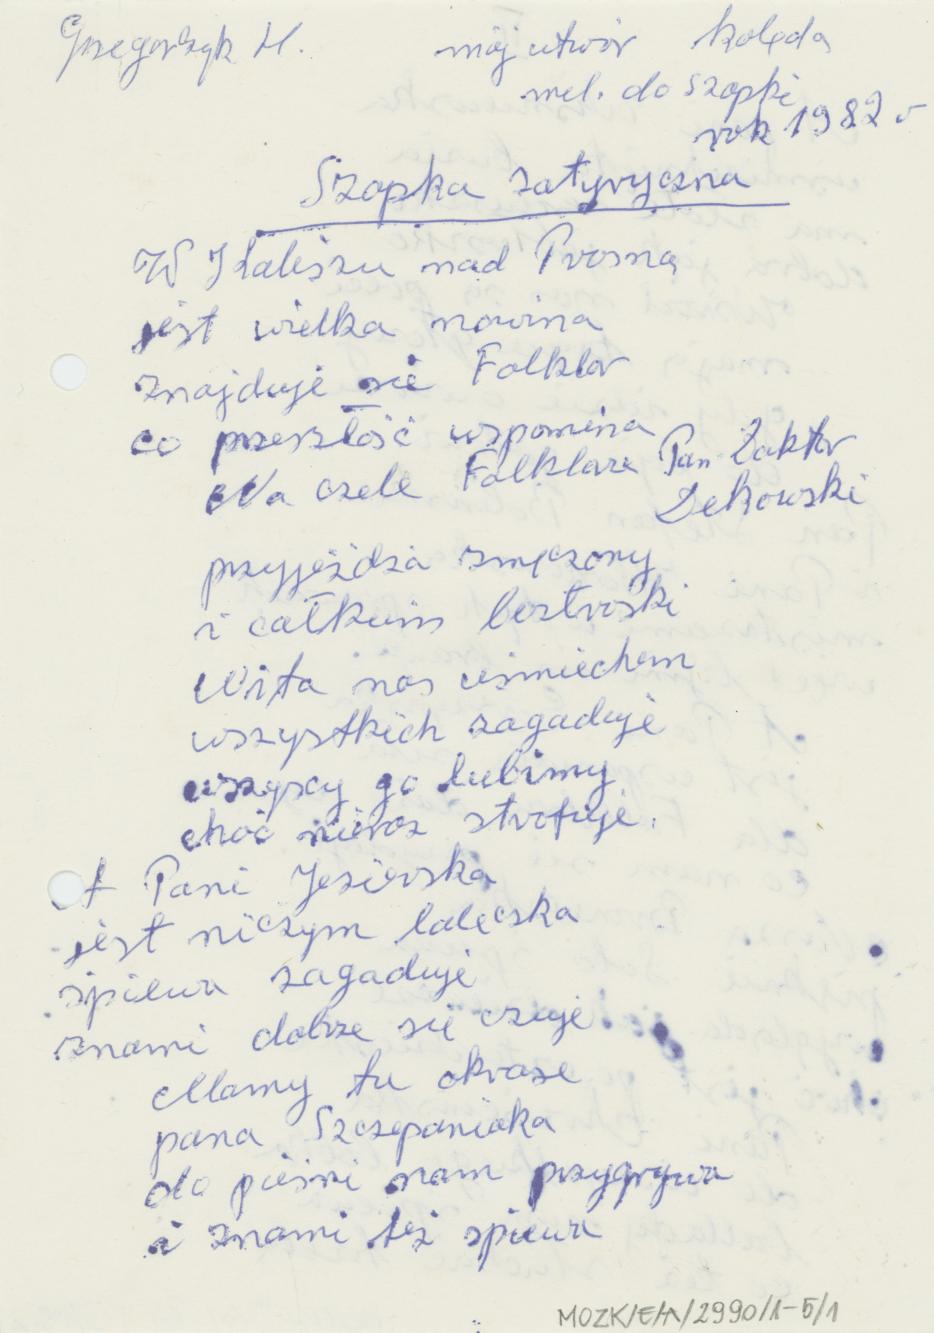 Grzegorzyk H. mój utwór kolęda
mel. do szopki
rok 1982 r
Szopka satyryczna
W Kaliszu nad Prosną
jest wielka nowina
znajduje się Folklor
co przeszłość wspomina
Na czele Folkloru Pan Doktor
Dekowski
przyjeżdża zmęczony
i całkiem beztroski
Wita nas uśmiechem
wszystkich zagaduje
wszyscy go lubimy
choć nieroz strofuje.
A Pani Jezierska
jest niczym laleczka
śpiewa zagaduje
znami dobrze się czuje
Mamy tu okrase
pana Szczepaniaka
do pieśni nam przygrywa
i znami też śpiewa
MOZK/E/A/2990/1-5/1